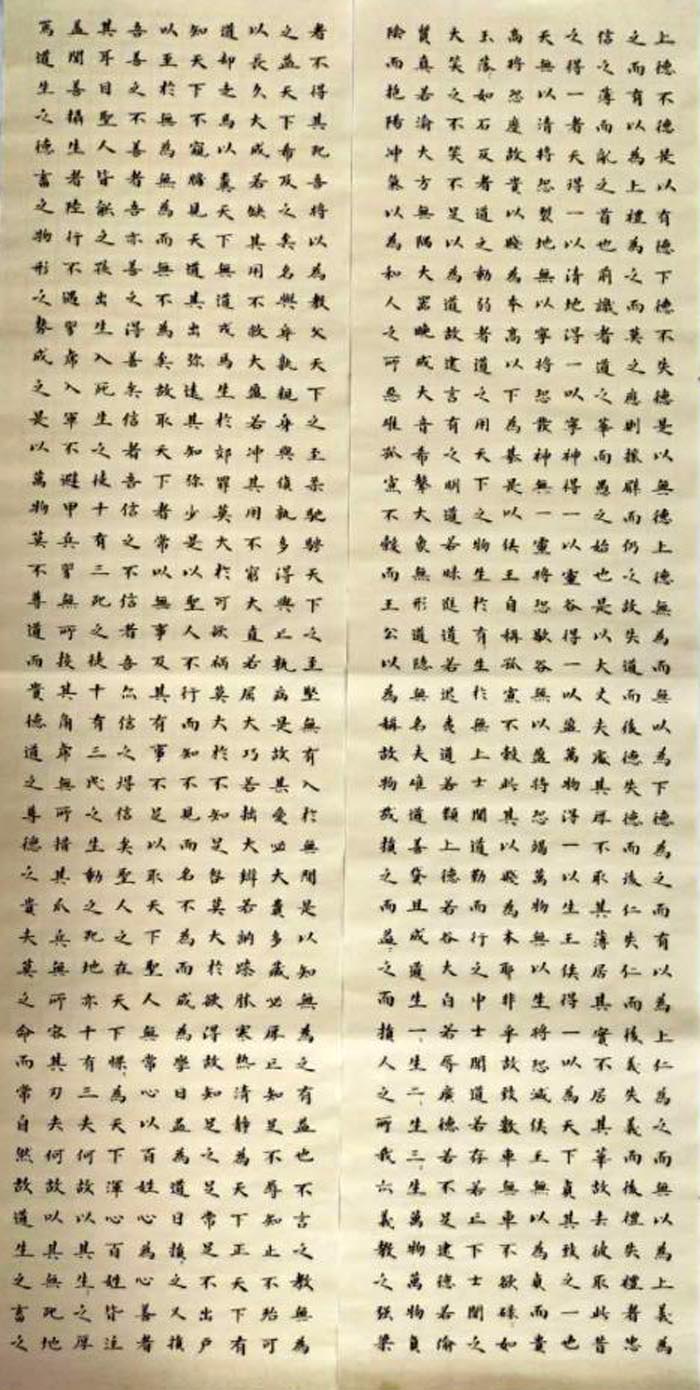 上德不德是以有德下德不失德是以無德上德無為而無以為下德為之而有以為上仁為之而無以為上義為
之而有以為上禮為之而莫之應則攘臂而仍之故失道而後德失德而後仁失仁而後義失義而後禮失禮者忠
信之薄而亂之首也前識者道之華而愚之始也是以大丈夫處其厚不取其薄居其實不居其華故去彼取此昔
之得一者天得一以清地得一以寧神得一以靈谷得一以盈萬物得一以生王侯得一以為天下貞其致之一也
天無以清將恐裂地無以寧將恐發神無一靈將恐歇谷無以盈將恐竭萬物無以生將恐滅侯王無以為貞而貴
高將恐蹷故貴以賤為本高以下為基是以侯王自稱孤寡不穀此其以賤為本耶非乎故致數車無車不欲琭如
玉落如石反者道之動弱者道之用天下之物生於有生於無上士聞道勤而行之中士聞道若存若亡下士聞之
大笑之不笑不足以為道故建言有之明道若昧進道若退夷道若纇上德若谷大白若辱廣德若不足建德若偷
質真若渝大方無隅大器晚成大音希聲大象無形道隱無名夫唯道善貸且成道生一生二生三生萬物萬物負
陰而抱陽冲氣以為和人之所惡唯孤寡不穀而王公以為稱故物或損之而益之而損人之所我亦義教之强梁
者不得其死吾將以為教父天下之至柔馳騁天下之至堅無有入於無間是以知無為之有益也不言之教無為
之益天下希及之矣名與身孰親身與貨孰多得與亡孰病是故甚愛必大費多藏必厚亡知足不辱知止不殆可
以長久大成若缺其用不敝大盈若冲其用不窮大直若屈大巧若拙大辯若訥躁勝寒熱清靜為天下正天下有
道却走馬以糞天下無道戎馬生於郊罪莫大於可欲禍莫大於不知足咎莫大於欲得故知足之足常足不出戶
知天下不窺牖見天道其出弥遠其知弥少是以聖人不行而知不見而名不為而成為學日益為道日損之又損
以至於無為無為而無不為矣故取天下者常以無事及其有事不足以取天下聖人無常心以百姓心為心善者
吾善之不善者吾亦善之得善矣信者吾信之不信者吾亦信之得信矣聖人之在天下惵為天下渾心百姓皆注
其耳目聖人皆能之孩出生入死生之徒十有三死之徒十有三民之生動之死地亦十有三夫何故以其生之厚
蓋聞善攝生者陸行不遇兕虎入軍不避甲兵兕無所投其角虎無所措其爪兵無所容其刃夫何故以其無死地
焉道生之德畜之物形之勢成之是以萬物莫不尊道而貴德道之尊德之貴夫莫之命而常自然故道生之畜之